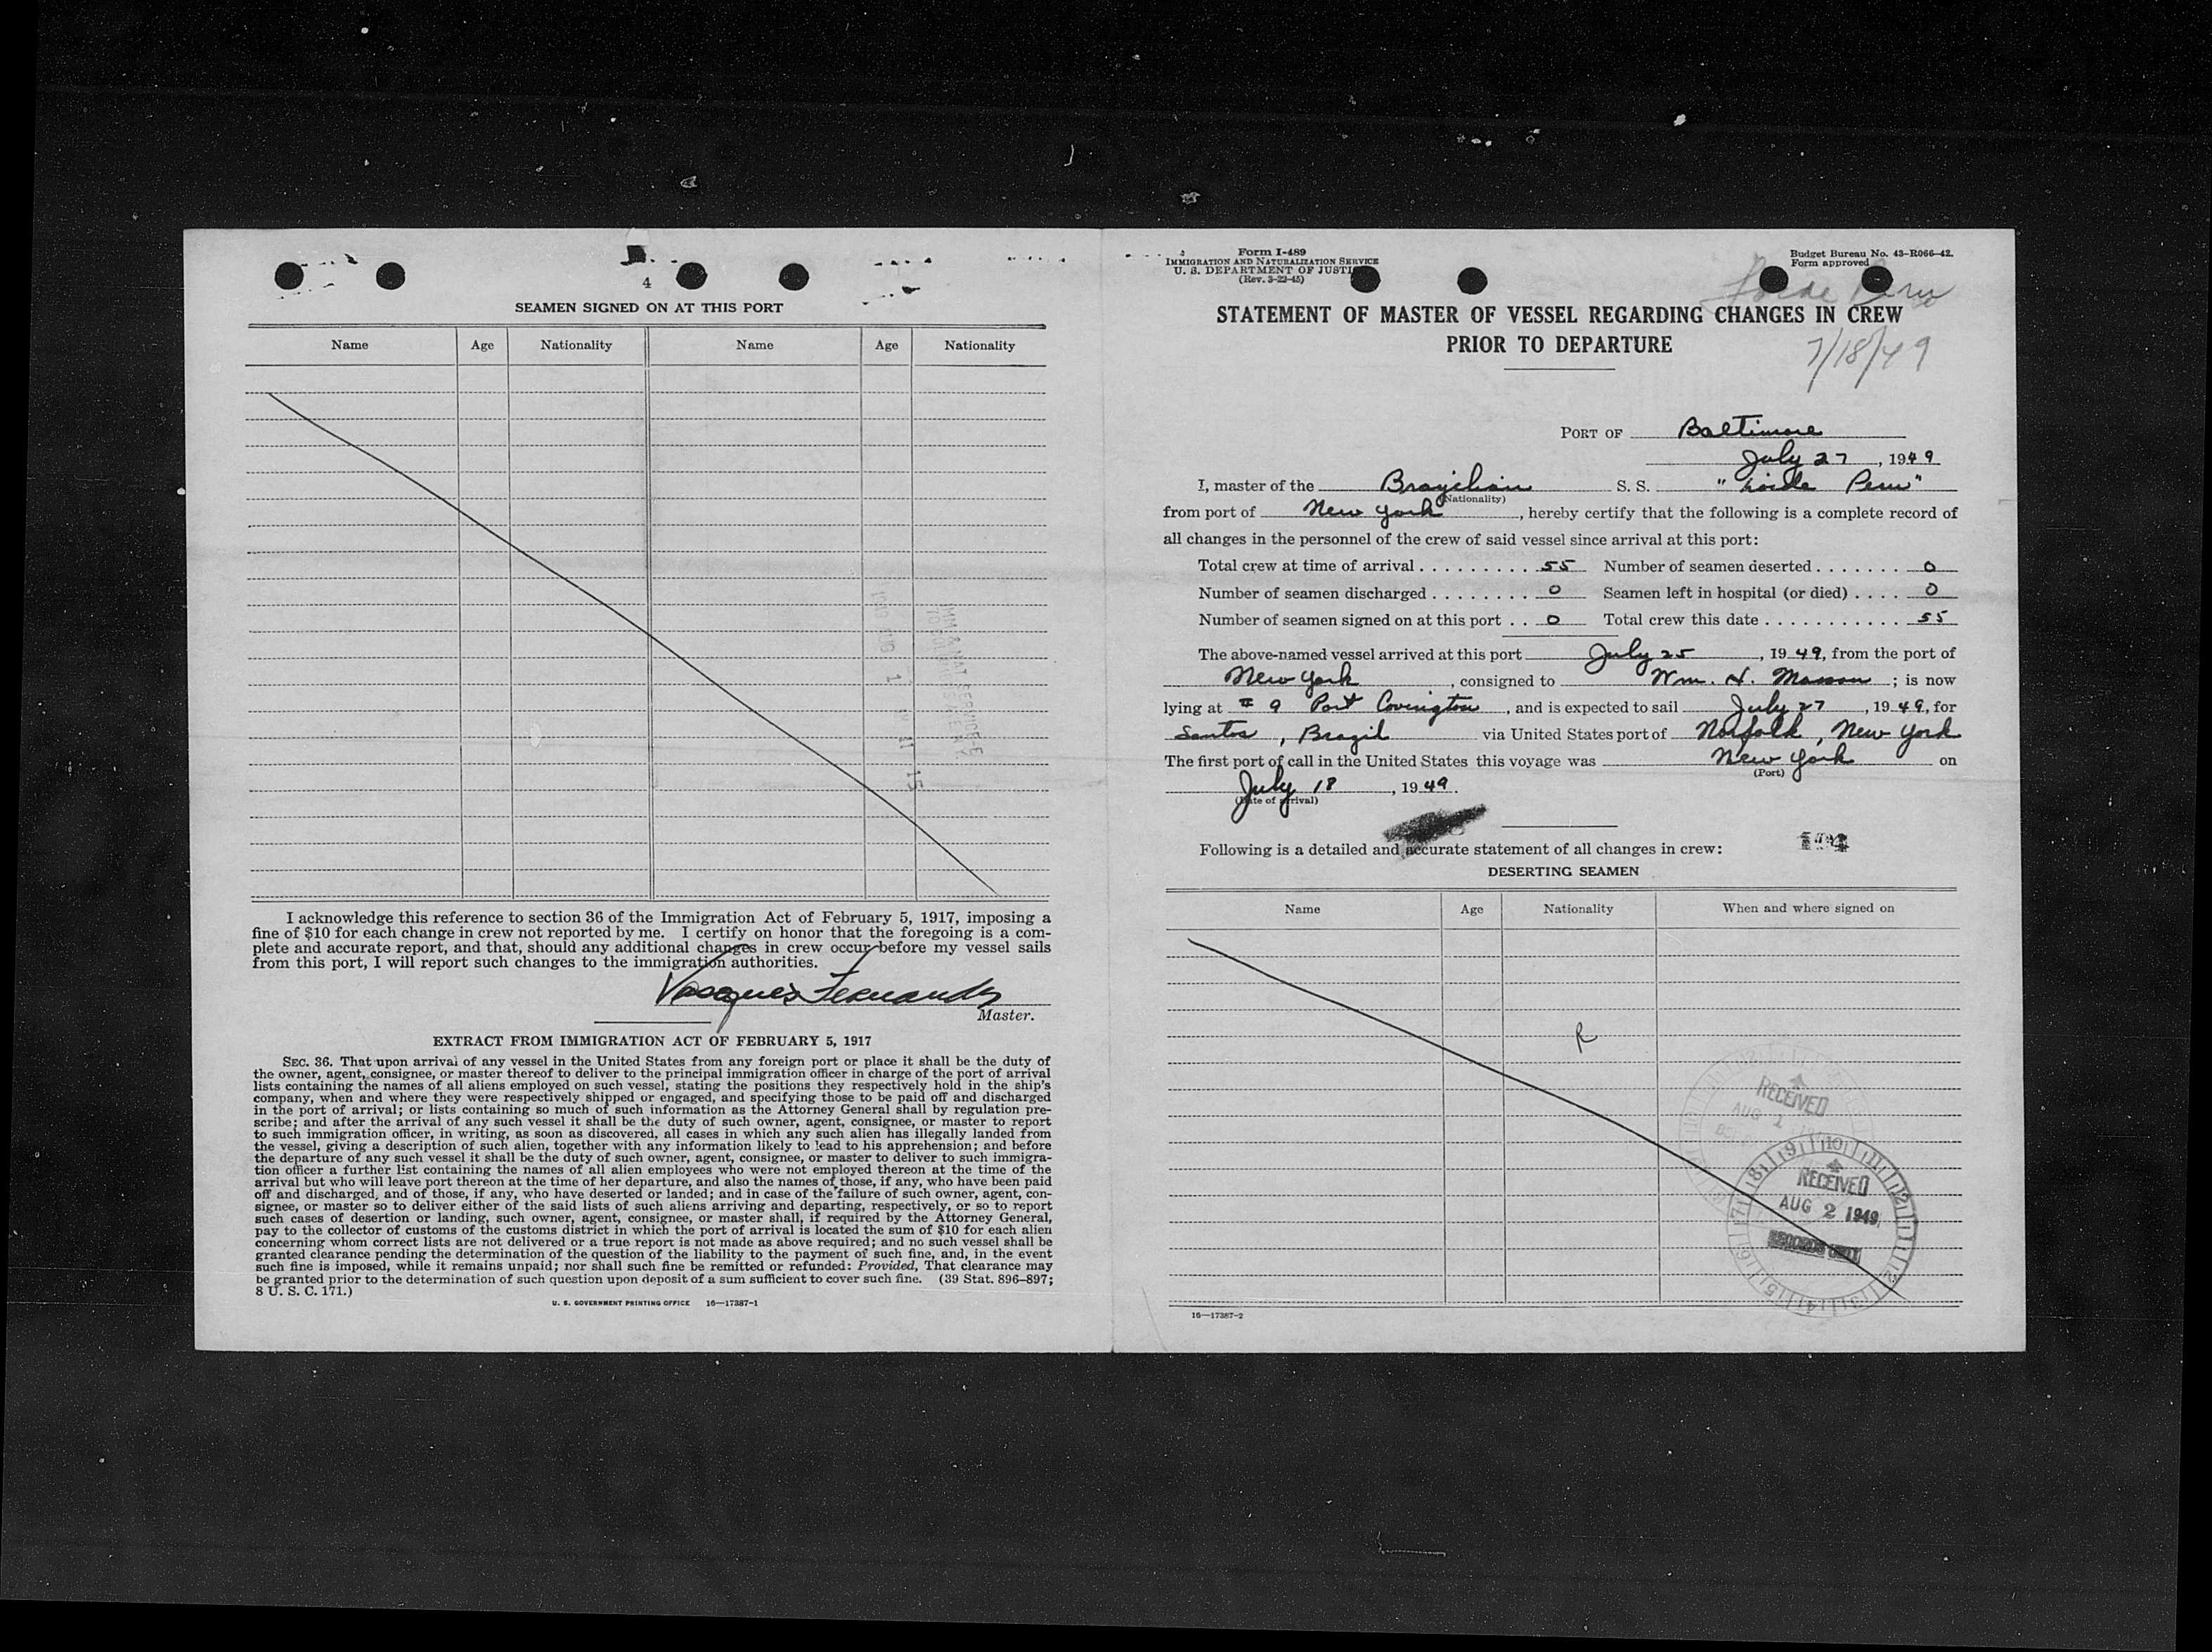 4
SEAMEN SIGNED ON AT THIS PORT
Name Age Nationality Name Age Nationality
I acknowledge this reference to section 36 of the Immigration Act of February 5, 1917, imposing a
fine of $10 for each change in crew not reported by me. I certify on honor that the foregoing is a com-
plete and accurate report, and that, should any additional changes in crew occur before my vessel sails
from this port, I will report such changes to the immigration authorities.
Master.
EXTRACT FROM IMMIGRATION ACT OF FEBRUARY 5, 1917
SEC. 36. That upon arrival of any vessel in the United States from any foreign port or place it shall be the duty of
the owner, agent, consignee, or master thereof to deliver to the principal immigration officer in charge of the port of arrival
lists containing the names of all aliens employed on such vessel, stating the positions they respectively hold in the ship's
company, when and where they were respectively shipped or engaged, and specifying those to be paid off and discharged
in the port of arrival; or lists containing so much of such information as the Attorney General shall by regulation pre-
scribe; and after the arrival of any such vessel it shall be the duty of such owner, agent, consignee, or master to report
to such immigration officer, in writing, as soon as discovered, all cases in which any such alien has illegally landed from
the vessel, giving a description of such alien, together with any information likely to lead to his apprehension; and before
the departure of any such vessel it shall be the duty of such owner, agent, consignee, or master to deliver to such immigra-
tion officer a further list containing the names of all alien employees who were not employed thereon at the time of the
arrival but who will leave port thereon at the time of her departure, and also the names of those, if any, who have been paid
off and discharged, and of those, if any, who have deserted or landed; and in case of the failure of such owner, agent, con-
signee, or master so to deliver either of the said lists of such aliens arriving and departing, respectively, or so to report
such cases of desertion or landing, such owner, agent, consignee, or master shall, if required by the Attorney General,
pay to the collector of customs of the customs district in which the port of arrival is located the sum of $10 for each alien
concerning whom correct lists are not delivered or a true report is not made as above required; and no such vessel shall be
granted clearance pending the determination of the question of the liability to the payment of such fine, and, in the event
such fine is imposed, while it remains unpaid; nor shall such fine be remitted or refunded: Provided, That clearance may
be granted prior to the determination of such question upon deposit of a sum sufficient to cover such fine. (39 Stat. 896–897;
8 U. S. C. 171.)
U. S. GOVERNMENT PRINTING OFFICE 16—17387-1
Form I-489
IMMIGRATION AND NATURALIZATION SERVICE
U. S. DEPARTMENT OF JUSTI
(Rev. 3-22-45)
Budget Bureau No. 43-R066-42.
Form approved
STATEMENT OF MASTER OF VESSEL REGARDING CHANGES IN CREW
PRIOR TO DEPARTURE
7/18/49
PORT OF Baltimore
July 27, 1949
I, master of the Brazilian S. S. "Loide Peru"
(Nationality)
from port of New York, hereby certify that the following is a complete record of
all changes in the personnel of the crew of said vessel since arrival at this port:
Total crew at time of arrival 55 Number of seamen deserted 0
Number of seamen discharged 0 Seamen left in hospital (or died) 0
Number of seamen signed on at this port 0 Total crew this date 55
The above-named vessel arrived at this port July 25, 1949, from the port of
New York, consigned to Wm. H. Masson; is now
lying at # 9 Port Covington, and is expected to sail July 27, 1949, for
Santos, Brazil via United States port of Norfolk, New York
The first port of call in the United States this voyage was New York on
(Port)
July 18, 1949.
(Date of arrival)
Following is a detailed and accurate statement of all changes in crew:
DESERTING SEAMEN
Name Age Nationality When and where signed on
R
RECEIVED
AUG 1
RECEIVED
AUG 2 1949
RECORDS UNIT
16—17387-2